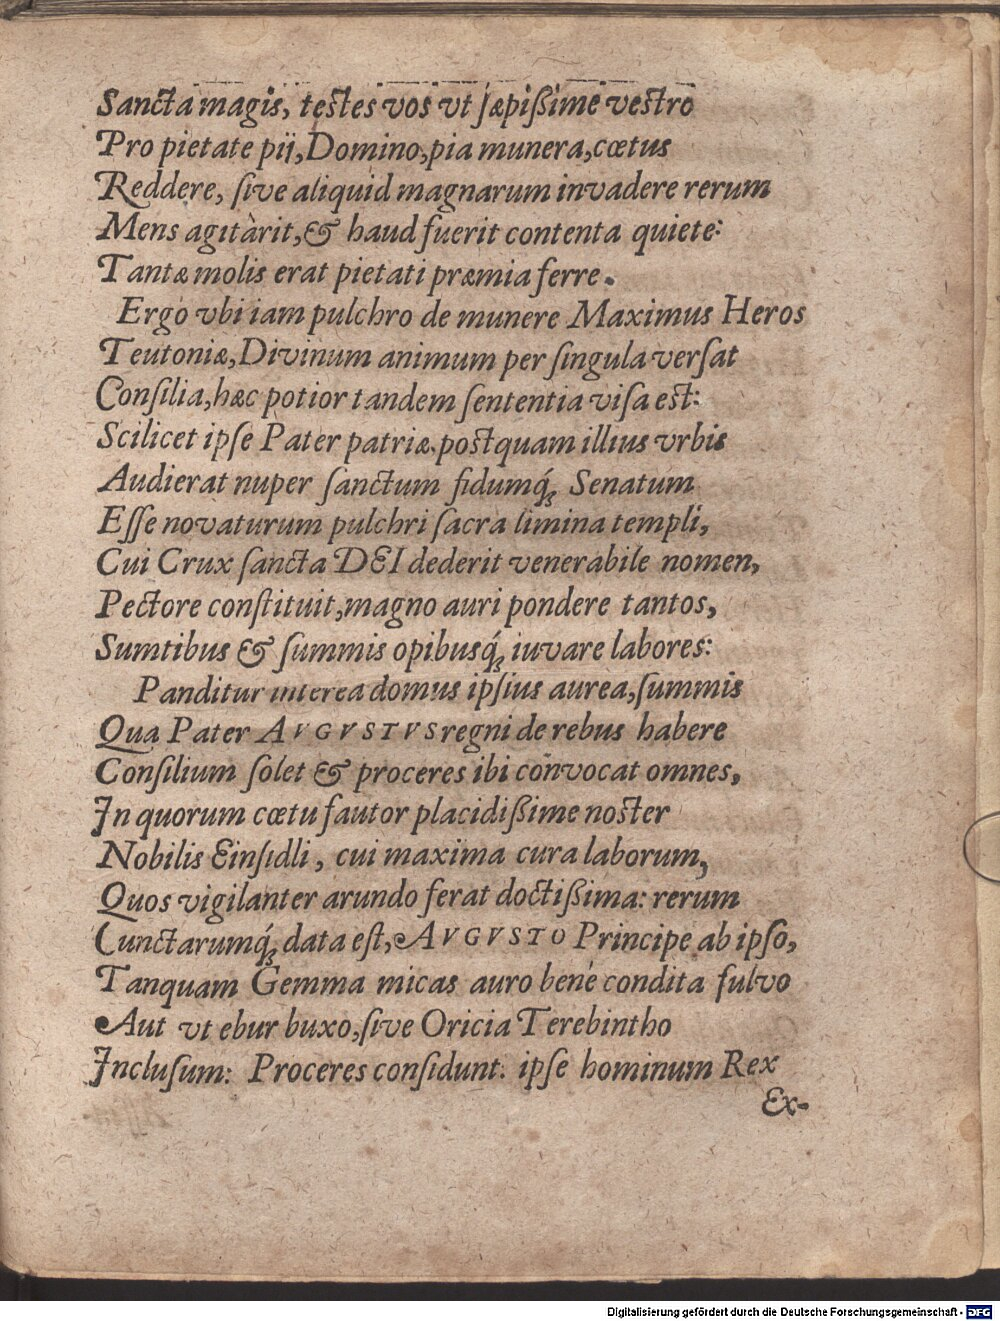 Sancta magis, testes vos vt sæpißime vestro
Pro pietate pij, Domino, pia munera, cœtus
Reddere, sive aliquid magnarum invadere rerum
Mens agitàrit, & haud fuerit contenta quiete:
Tantæ molis erat pietati præmia ferre.
Ergo vbi iam pulchro de munere Maximus Heros
Teutoniæ, Divinum animum per singula versat
Consilia, hæc potior tandem sententia visa est:
Scilicet ipse Pater patriæ, postquam illius vrbis
Audierat nuper sanctum fidumq́; Senatum
Esse novaturum pulchri sacra limina templi,
Cui Crux sancta DEI dederit venerabile nomen,
Pectore constituit, magno auri pondere tantos,
Sumtibus & summis opibusq́; iuvare labores:
Panditur interea domus ipsius aurea, summis
Qua Pater AVGVSTVS regni de rebus habere
Consilium solet & proceres ibi convocat omnes,
In quorum cœtu fautor placidißime noster
Nobilis Einsidli, cui maxima cura laborum,
Quos vigilanter arundo ferat doctißima: rerum
Cunctarumq́; data est, AVGVSTO Principe ab ipso,
Tanquam Gemma micas auro benè condita fulvo
Aut vt ebur buxo, sive Oricia Terebintho
Inclusum: Proceres considunt. ipse hominum Rex
Ex-
Digitalisierung gefördert durch die Deutsche Forschungsgemeinschaft - DFG